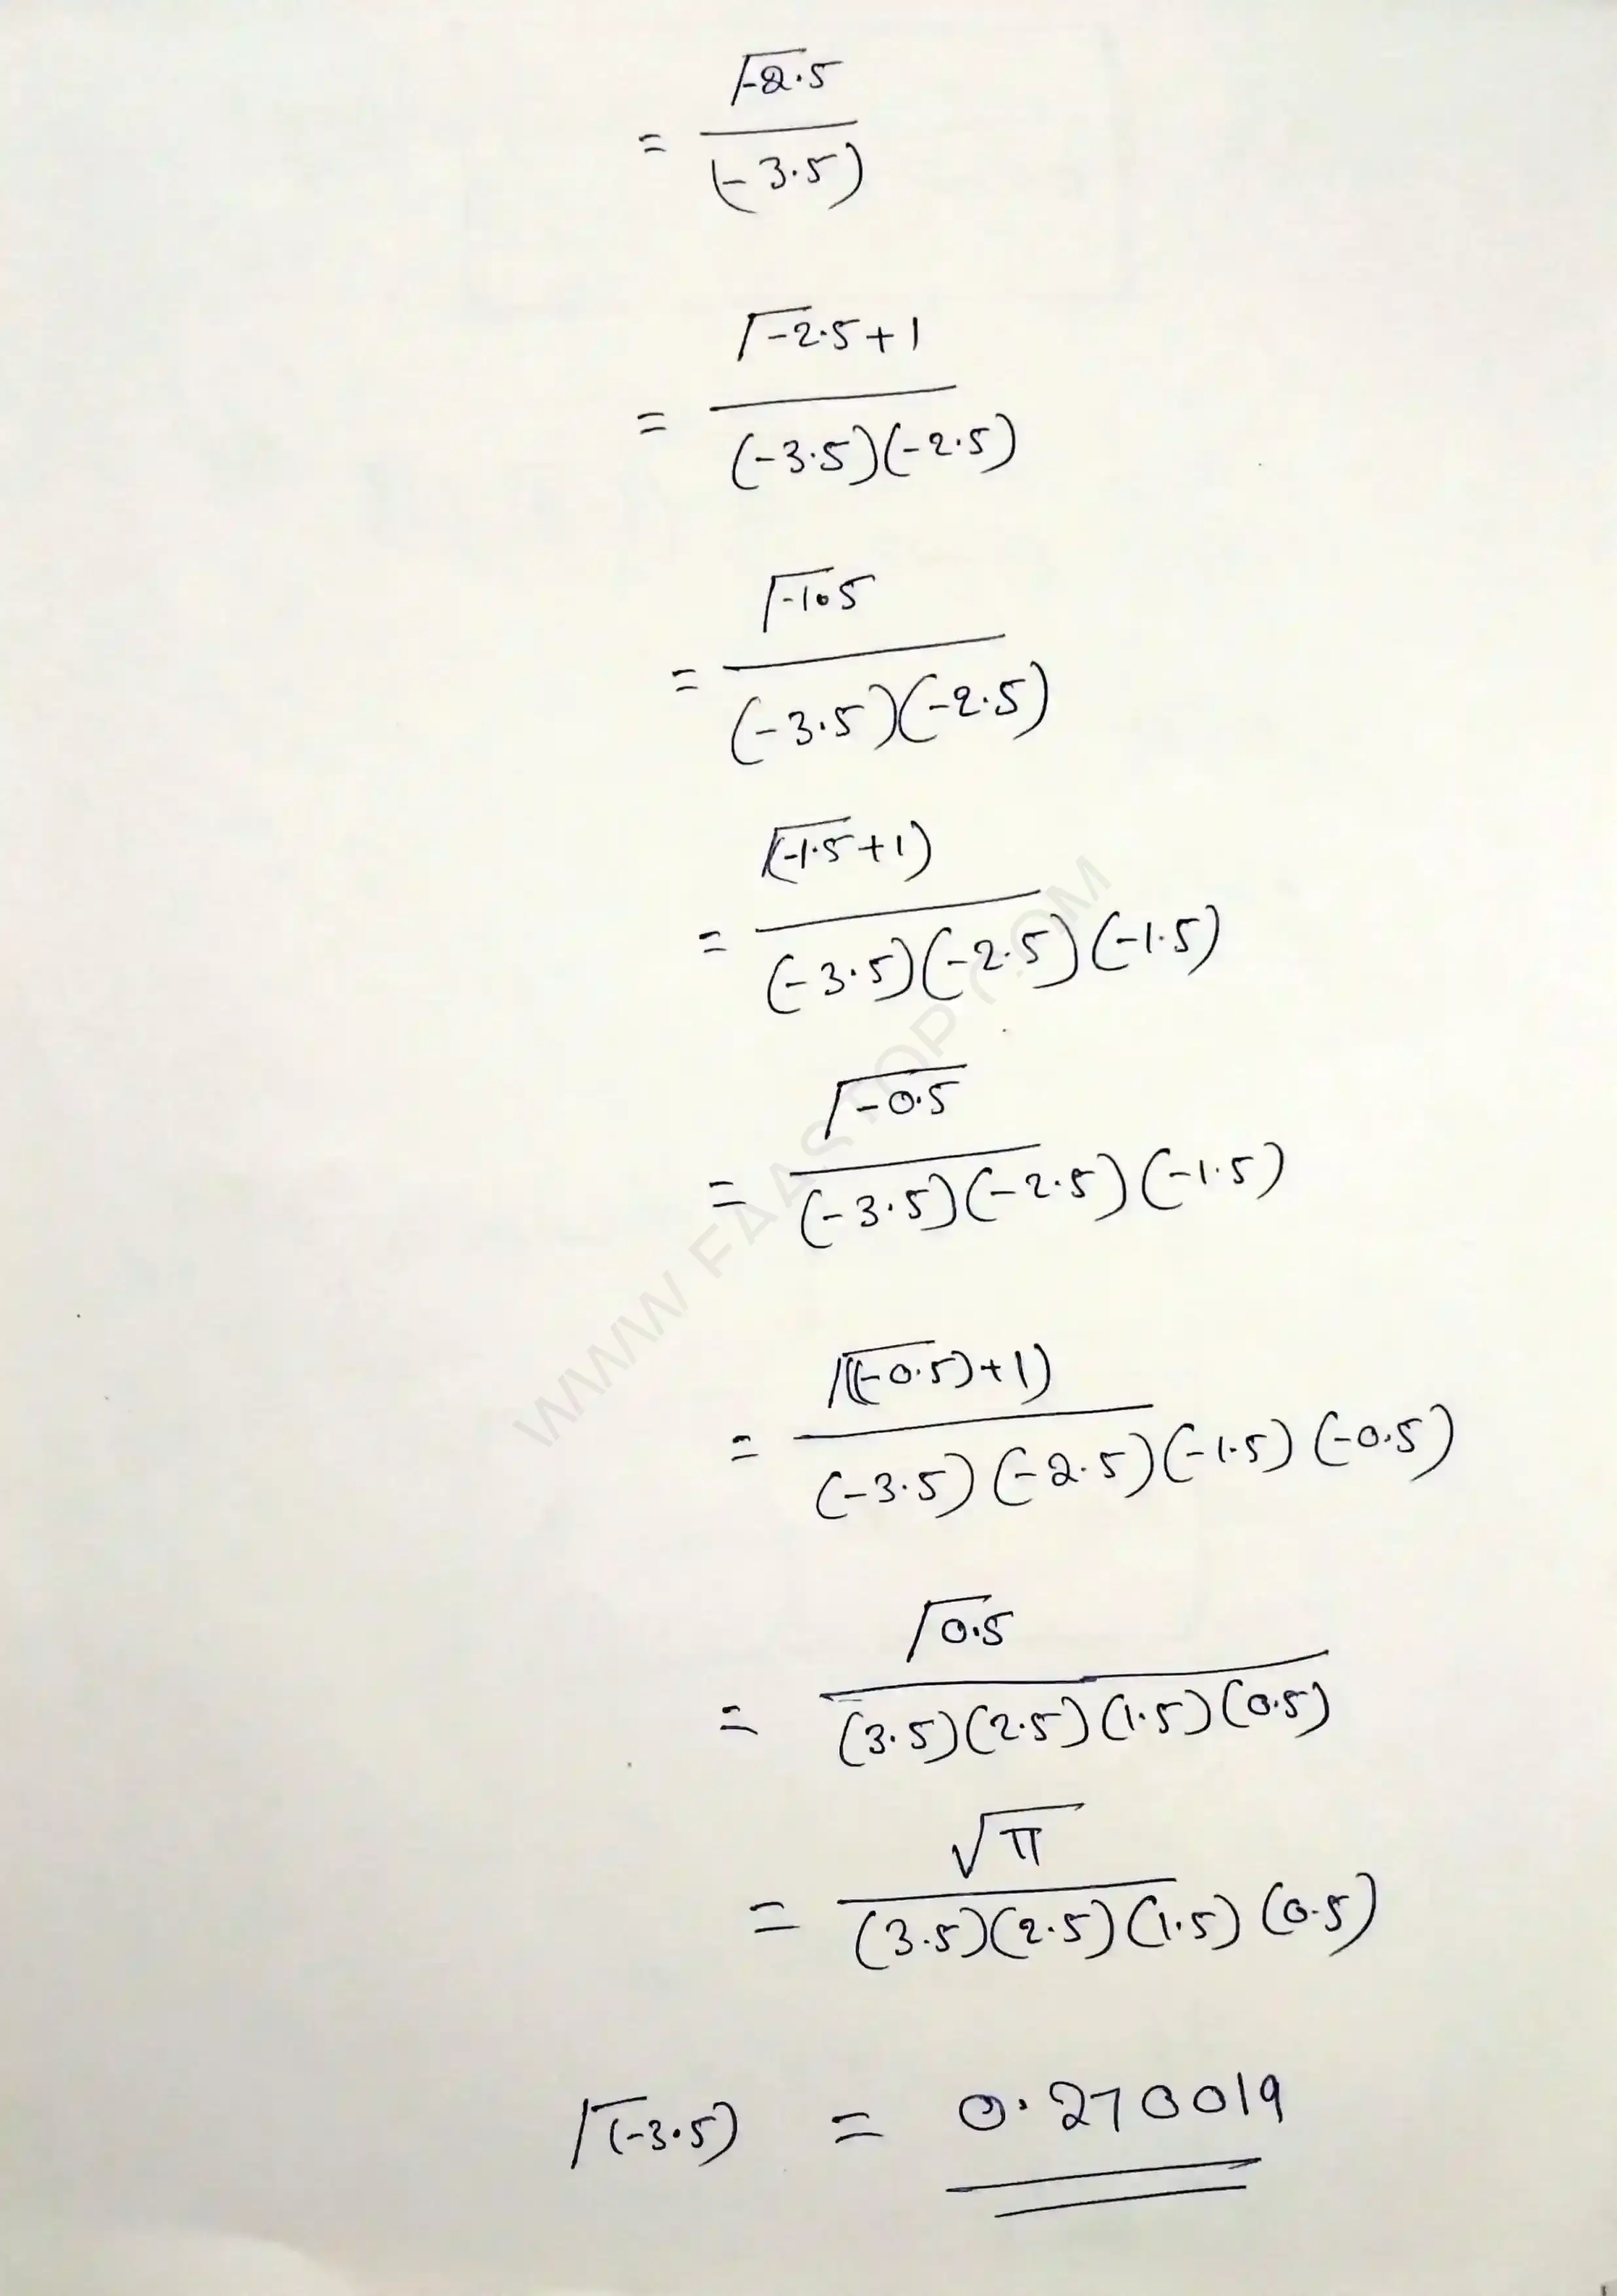 = Γ-2.5 / (-3.5)
= Γ-2.5+1 / (-3.5)(-2.5)
= Γ-1.5 / (-3.5)(-2.5)
= Γ(-1.5+1) / (-3.5)(-2.5)(-1.5)
= Γ-0.5 / (-3.5)(-2.5)(-1.5)
= Γ((-0.5)+1) / (-3.5)(-2.5)(-1.5)(-0.5)
= Γ0.5 / (3.5)(2.5)(1.5)(0.5)
= √π / (3.5)(2.5)(1.5)(0.5)
Γ(-3.5) = 0.270019